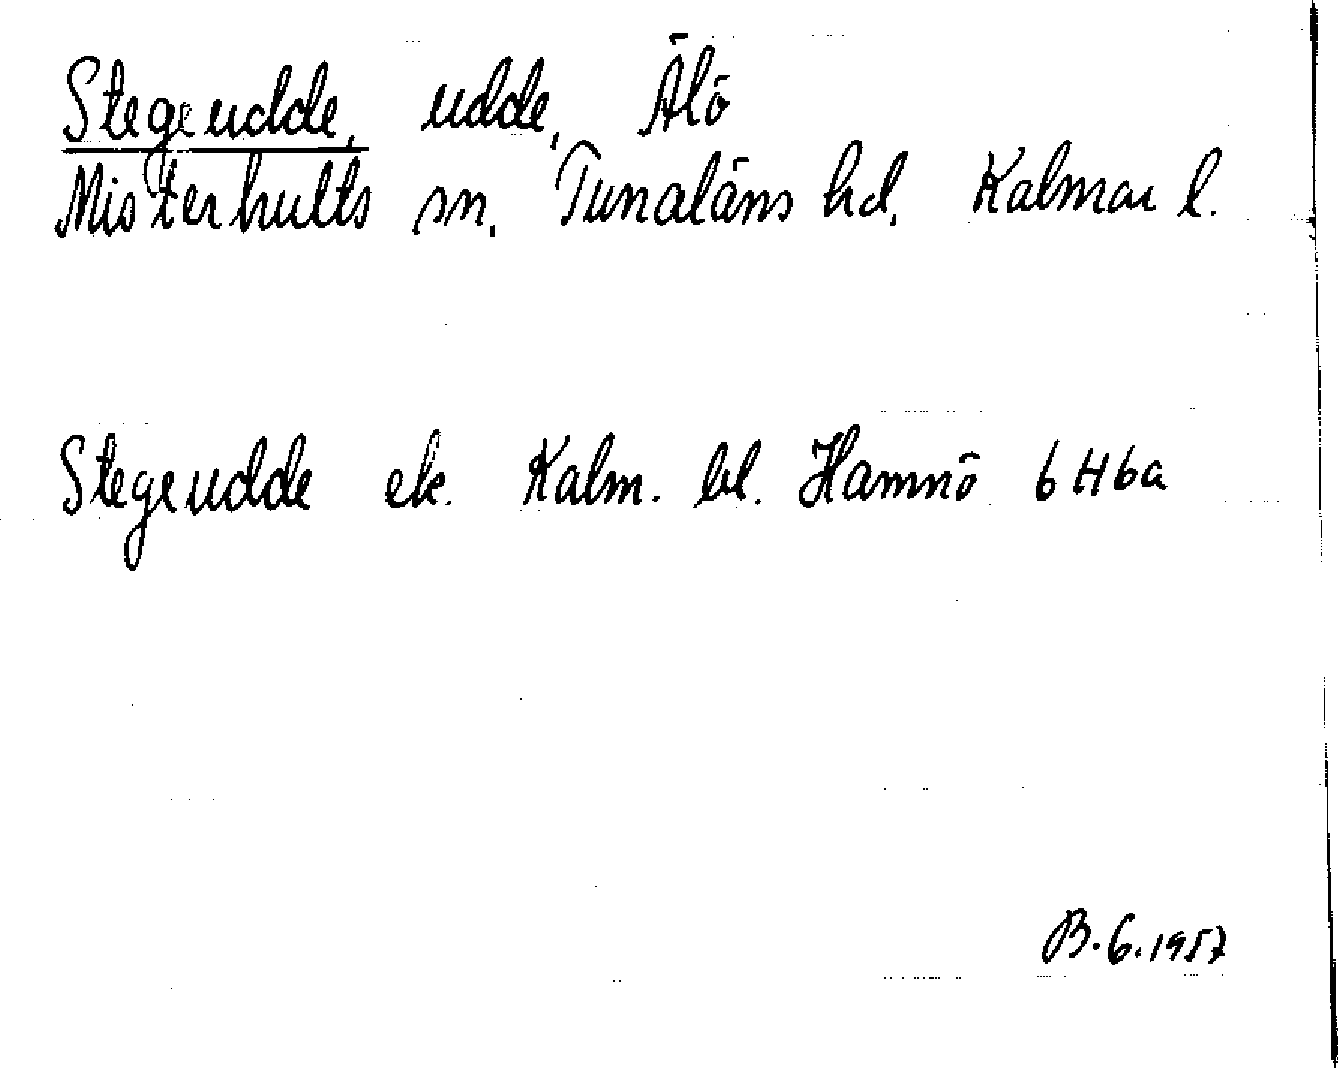 Stegeudde, udde, Älö
Misterhults sn. Tunaläns hd. Kalmar l.
Stegeudde ek. Kalm. bl. Hamnö 6 H 6a
B. 6. 1957